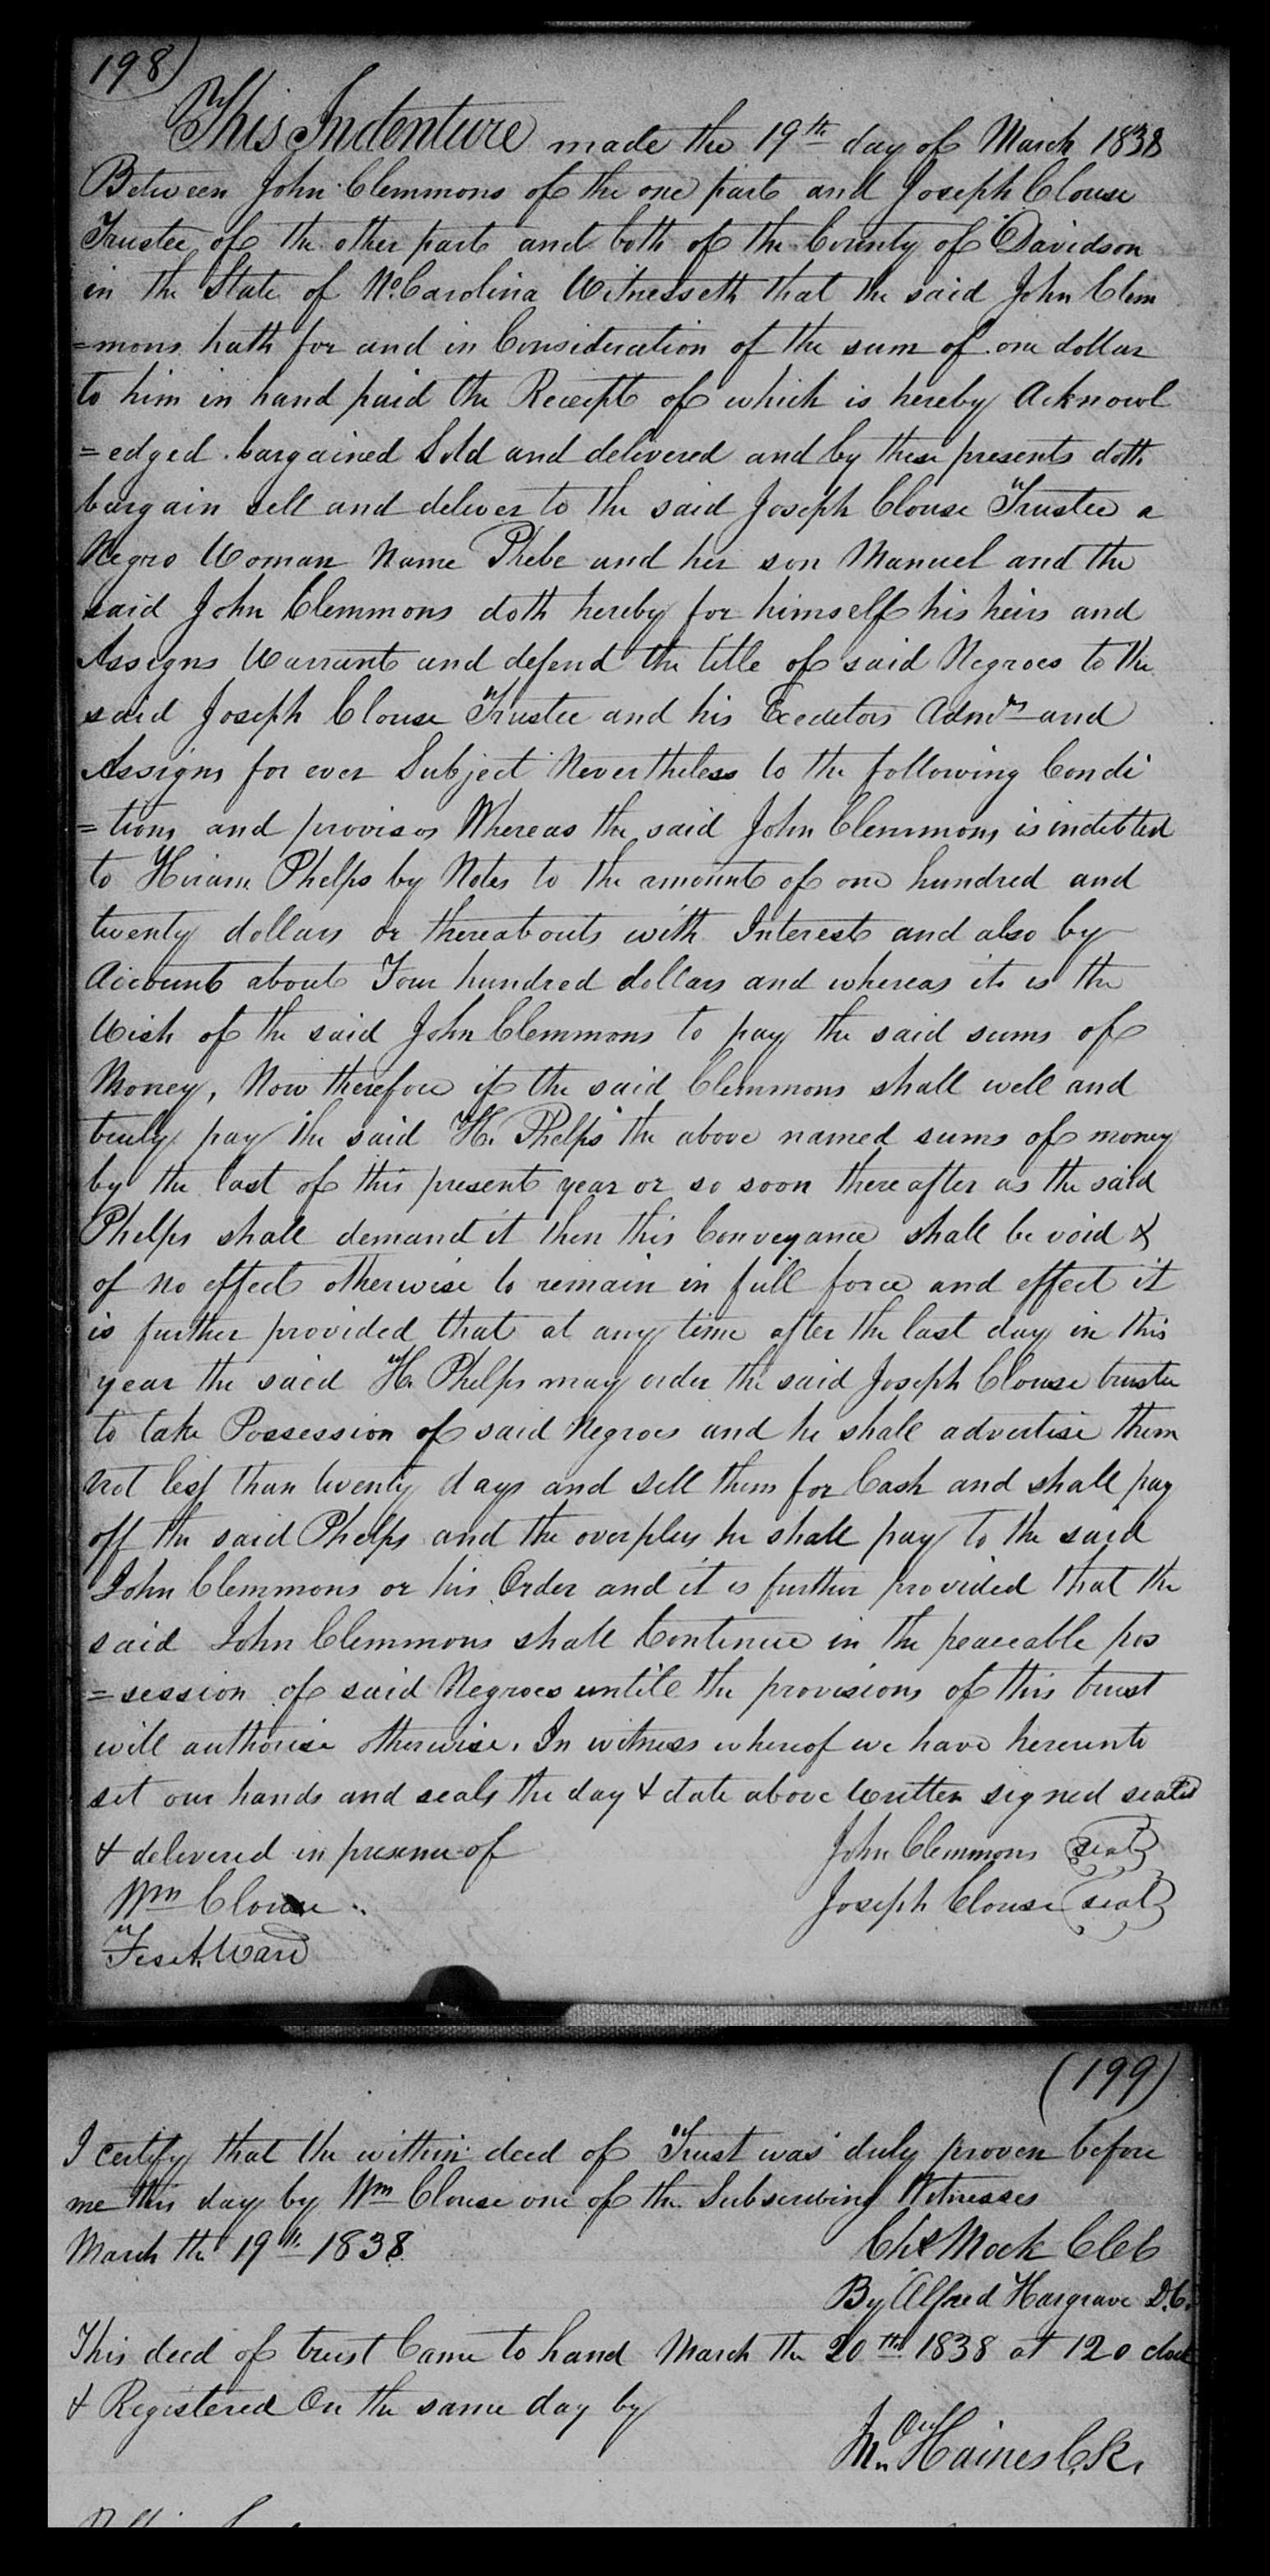 198)
This Indenture made the 19th day of March 1838
Between John Clemmons of the one part and Joseph Clouse
Trustee of the other part and both of the County of Davidson
in the State of No. Carolina Witnesseth that the said John Clem
=mons hath for and in Consideration of the sum of one dollar
to him in hand paid the Receipt of which is hereby Acknowl
=edged bargained Sold and delivered and by these presents doth
bargain sell and deliver to the said Joseph Clouse Trustee a
Negro Woman Name Phebe and her son Manuel and the
said John Clemmons doth hereby for himself his heirs and
Assigns Warrant and defend the title of said Negroes to the
said Joseph Clouse Trustee and his Exedetors Admrs and
Assigns for ever Subject Nevertheless to the following Condi
=tions and provisos Whereas the said John Clemmons is indebted
to Hiram Phelps by Notes to the amount of one hundred and
twenty dollars or thereabouts with Interest and also by
Account about Four hundred dollars and whereas it is the
Wish of the said John Clemmons to pay the said sums of
Money, Now therefore if the said Clemmons shall well and
truly pay the said H. Phelps the above named sums of money
by the last of this present year or so soon thereafter as the said
Phelps shall demand it then this Conveyance shall be void &
of no effect otherwise to remain in full force and effect it
is further provided that at any time after the last day in this
year the said H. Phelps may order the said Joseph Clouse trustee
to take Possession of said Negroes and he shall advertise them
not less than twenty days and sell them for Cash and shall pay
off the said Phelps and the overplus he shall pay to the said
John Clemmons or his Order and it is further provided that the
said John Clemmons shall Continue in the peaceable pos
=session of said Negroes untill the provisions of this trust
will authorise otherwise. In witness whereof we have hereunto
set our hands and seals the day & date above written signed sealed
& delivered in presence of John Clemmons (seal)
Wm Clouse Joseph Clouse (seal)
Ward
(199)
I certify that the within deed of Trust was duly proven before
me this day by Wm Clouse one of the Subscribing Witnesses
March the 19th 1838 Chs Mock CCC
By Alfred Hargrave D.C.
This deed of trust Came to hand March the 20th 1838 at 12 o clock
& Registered On the same day by
Haines C.R.